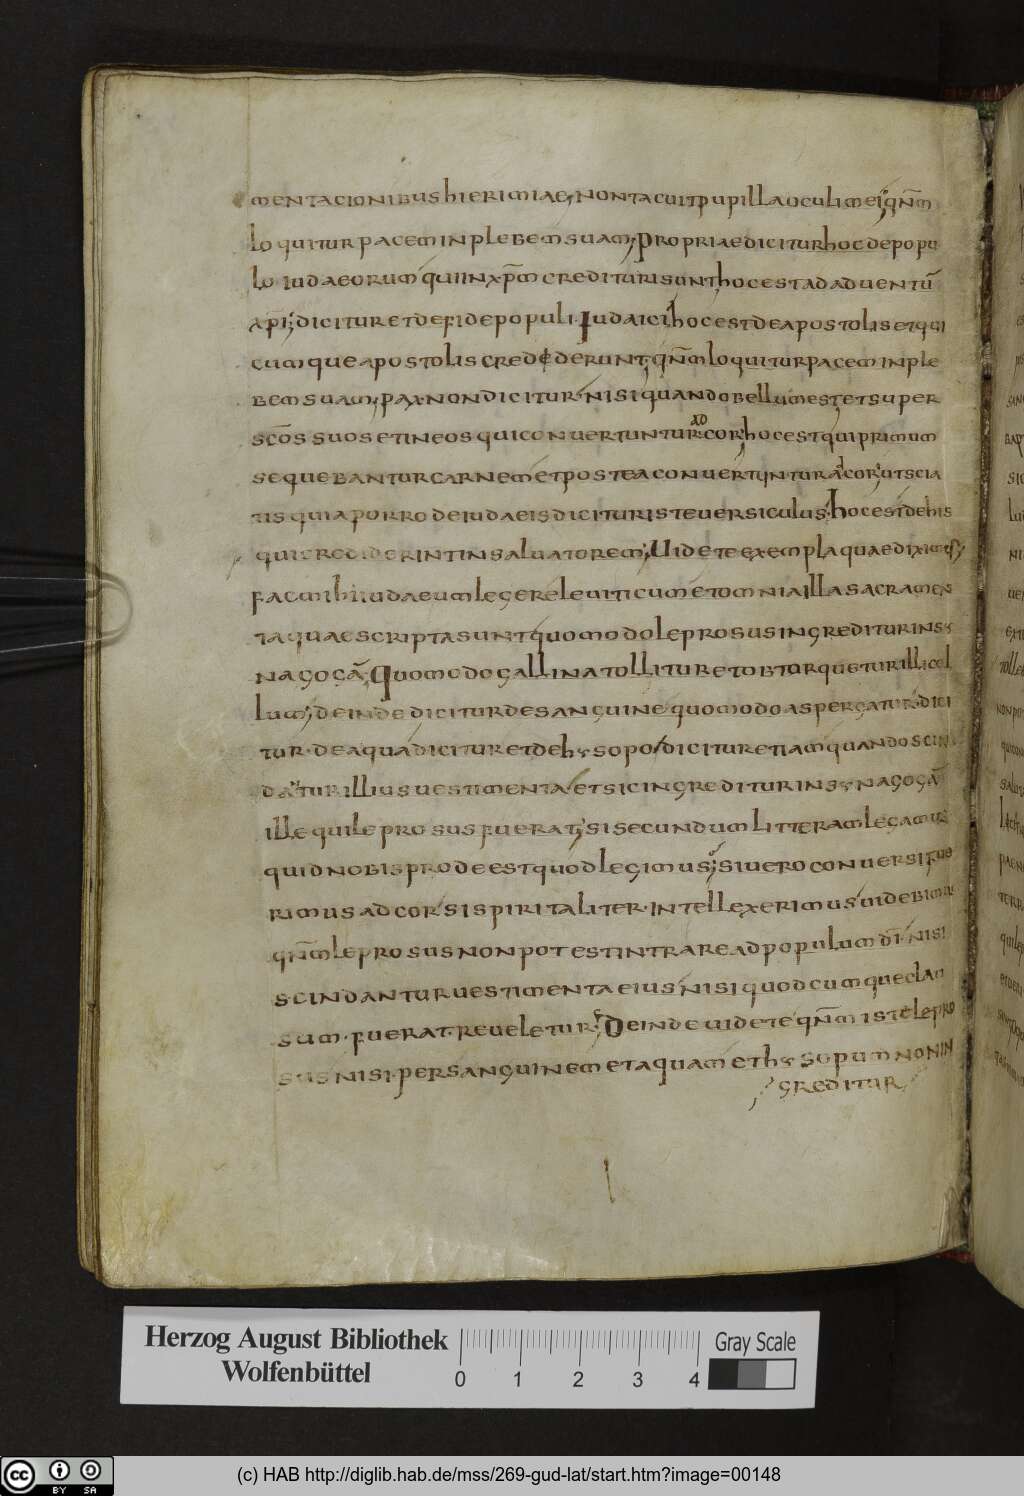 mentacionibus hieremiae, non tacuit pupilla oculi mei; qnm̄
loquitur pacem in plebem suam; Propriae dicitur hoc depopu
lo iudaeorum qui in xp̄m credituri sunt hoc est ad aduentū
xpi; dicitur et defide populi. Iudaici hoc est de apostolis et qui
cumque apostolis crediderunt; qnm̄ loquitur pacem in ple
bem suam; pax non dicitur nisi quando bellum est; et super
sc̄os suos et in eos qui conuertuntur ad cor; hoc est qui primum
sequebantur carnem et postea conuertuntur ad cor; ut scia
tis quia porro de iudaeis dicitur iste uersiculus; hoc est de his
qui crediderint in saluatorem; Uidete exempla quae diximus;
fac mihi iudaeum legere leuiticum et omnia illa sacramen
ta quae scripta sunt quomodo leprosus ingreditur in sy
nagogā; Quomodo gallina tollitur et obtorquetur illi col
lum; deinde dicitur de sanguine quomodo aspergatur; dici
tur de aqua dicitur et de hysopo / dicitur etiam quando scin
datur illius uestimenta et sic ingreditur in synagogā
ille qui leprosus fuerat; si secundum litteram legamus
quid nobis prode est quod legimus; si uero conuersi fue
rimus ad cor si spiritaliter intellexerimus uidebimus
qnm̄ leprosus non potest intrare ad populum dī nisi
scindantur uestimenta eius nisi quodcumque clau
sum fuerat reueletur; Deinde uidete qnm̄ iste lepro
sus nisi per sanguinem et aquam et hysopum non in
greditur
Herzog August Bibliothek
Wolfenbüttel
0 1 2 3 4
Gray Scale
cc BY SA
(c) HAB http://diglib.hab.de/mss/269-gud-lat/start.htm?image=00148